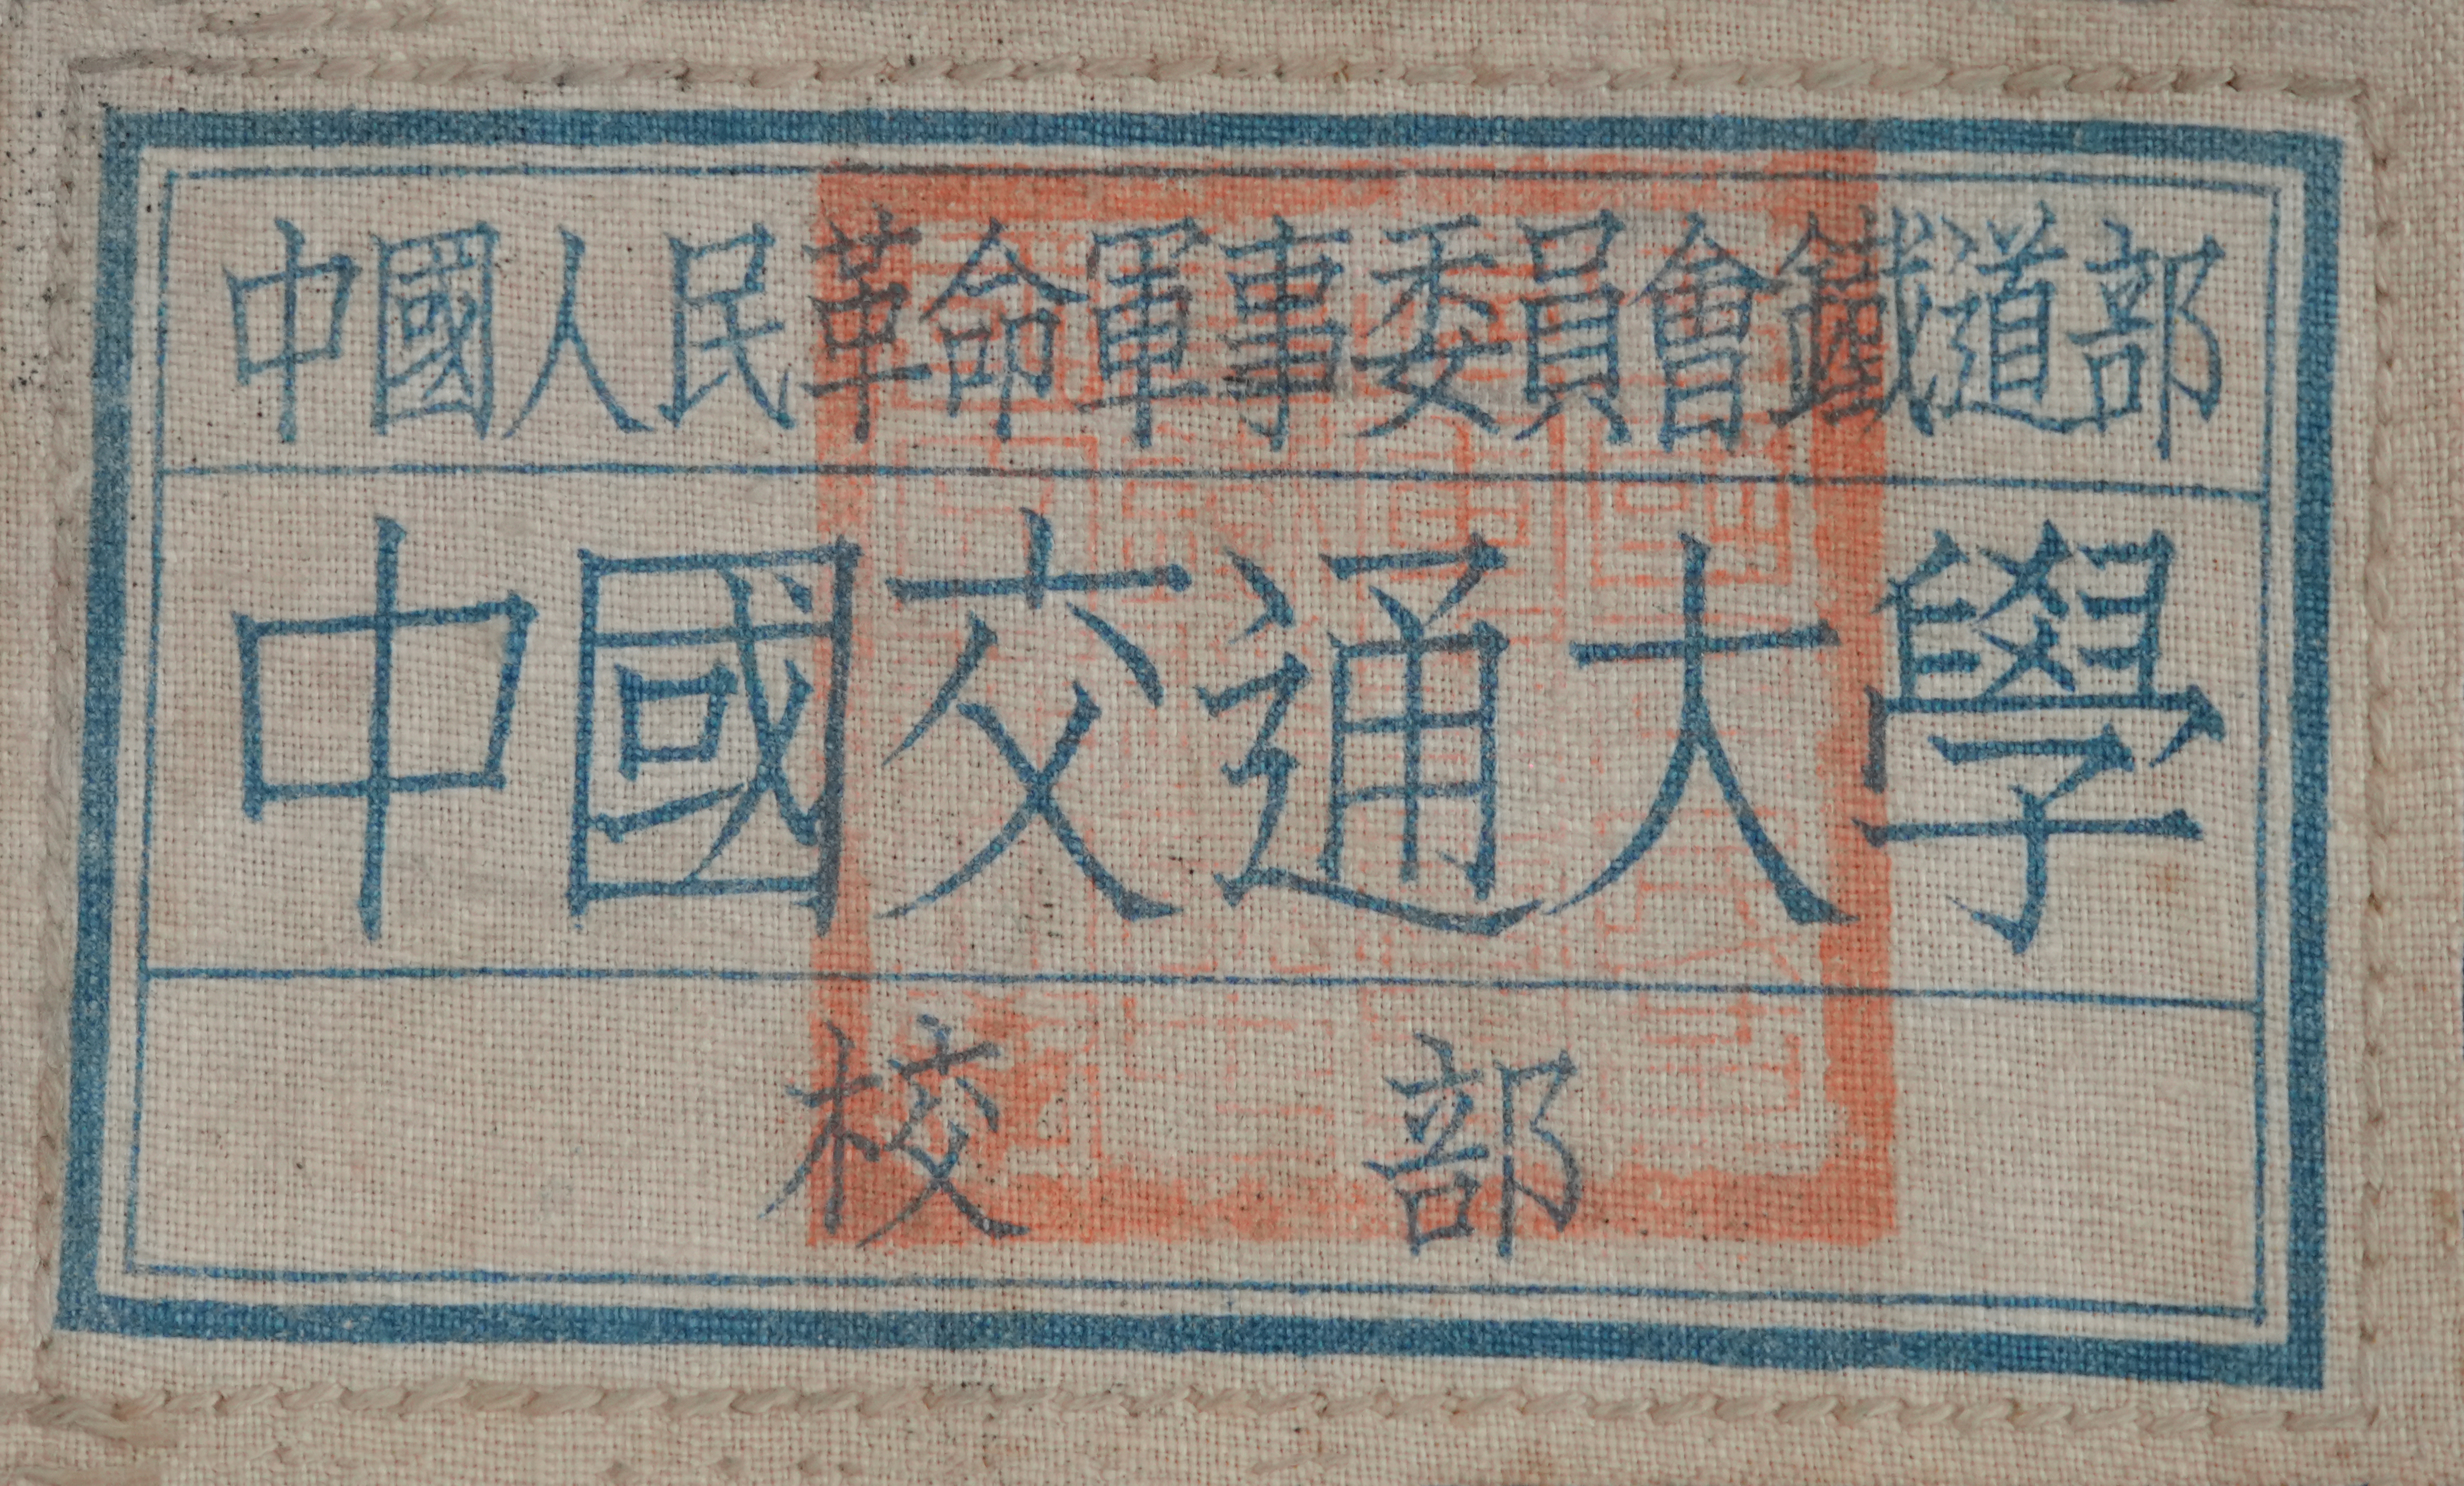 中國人民革命軍事委員會鐵道部
中國交通大學
校部